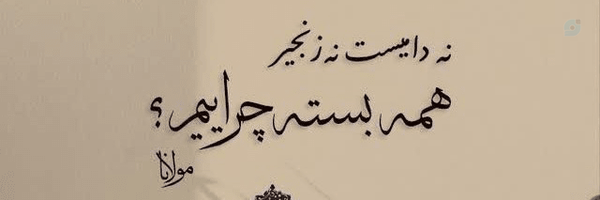 نه دامیست نه زنجیر
همه بسته چراییم ؟
مولانا